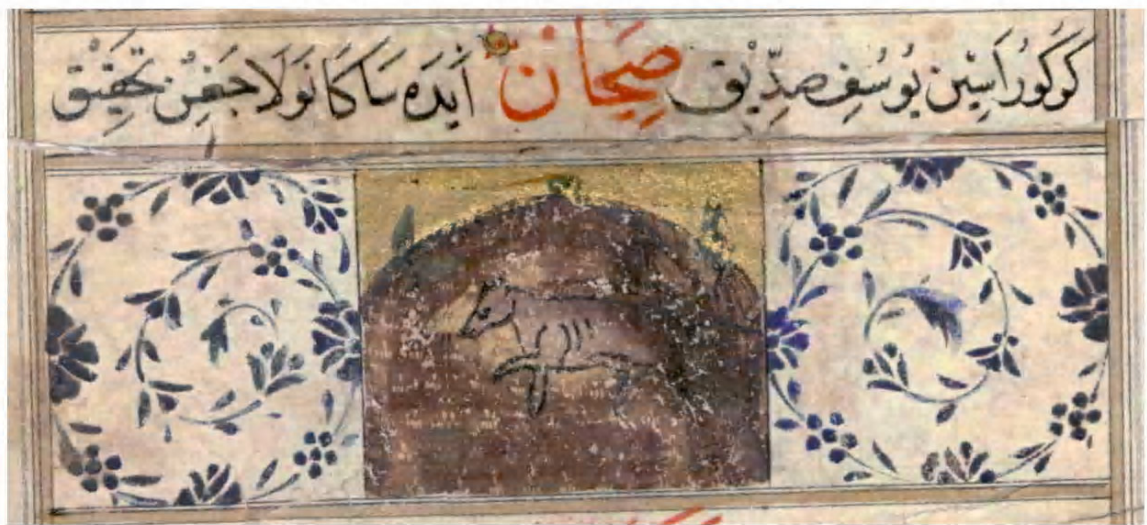 كَركُورَاسِين يُوسُفِ صِدِّيق صِجَان اَيدَه سَاكَا نَولَاجَغِن تَحقِيق